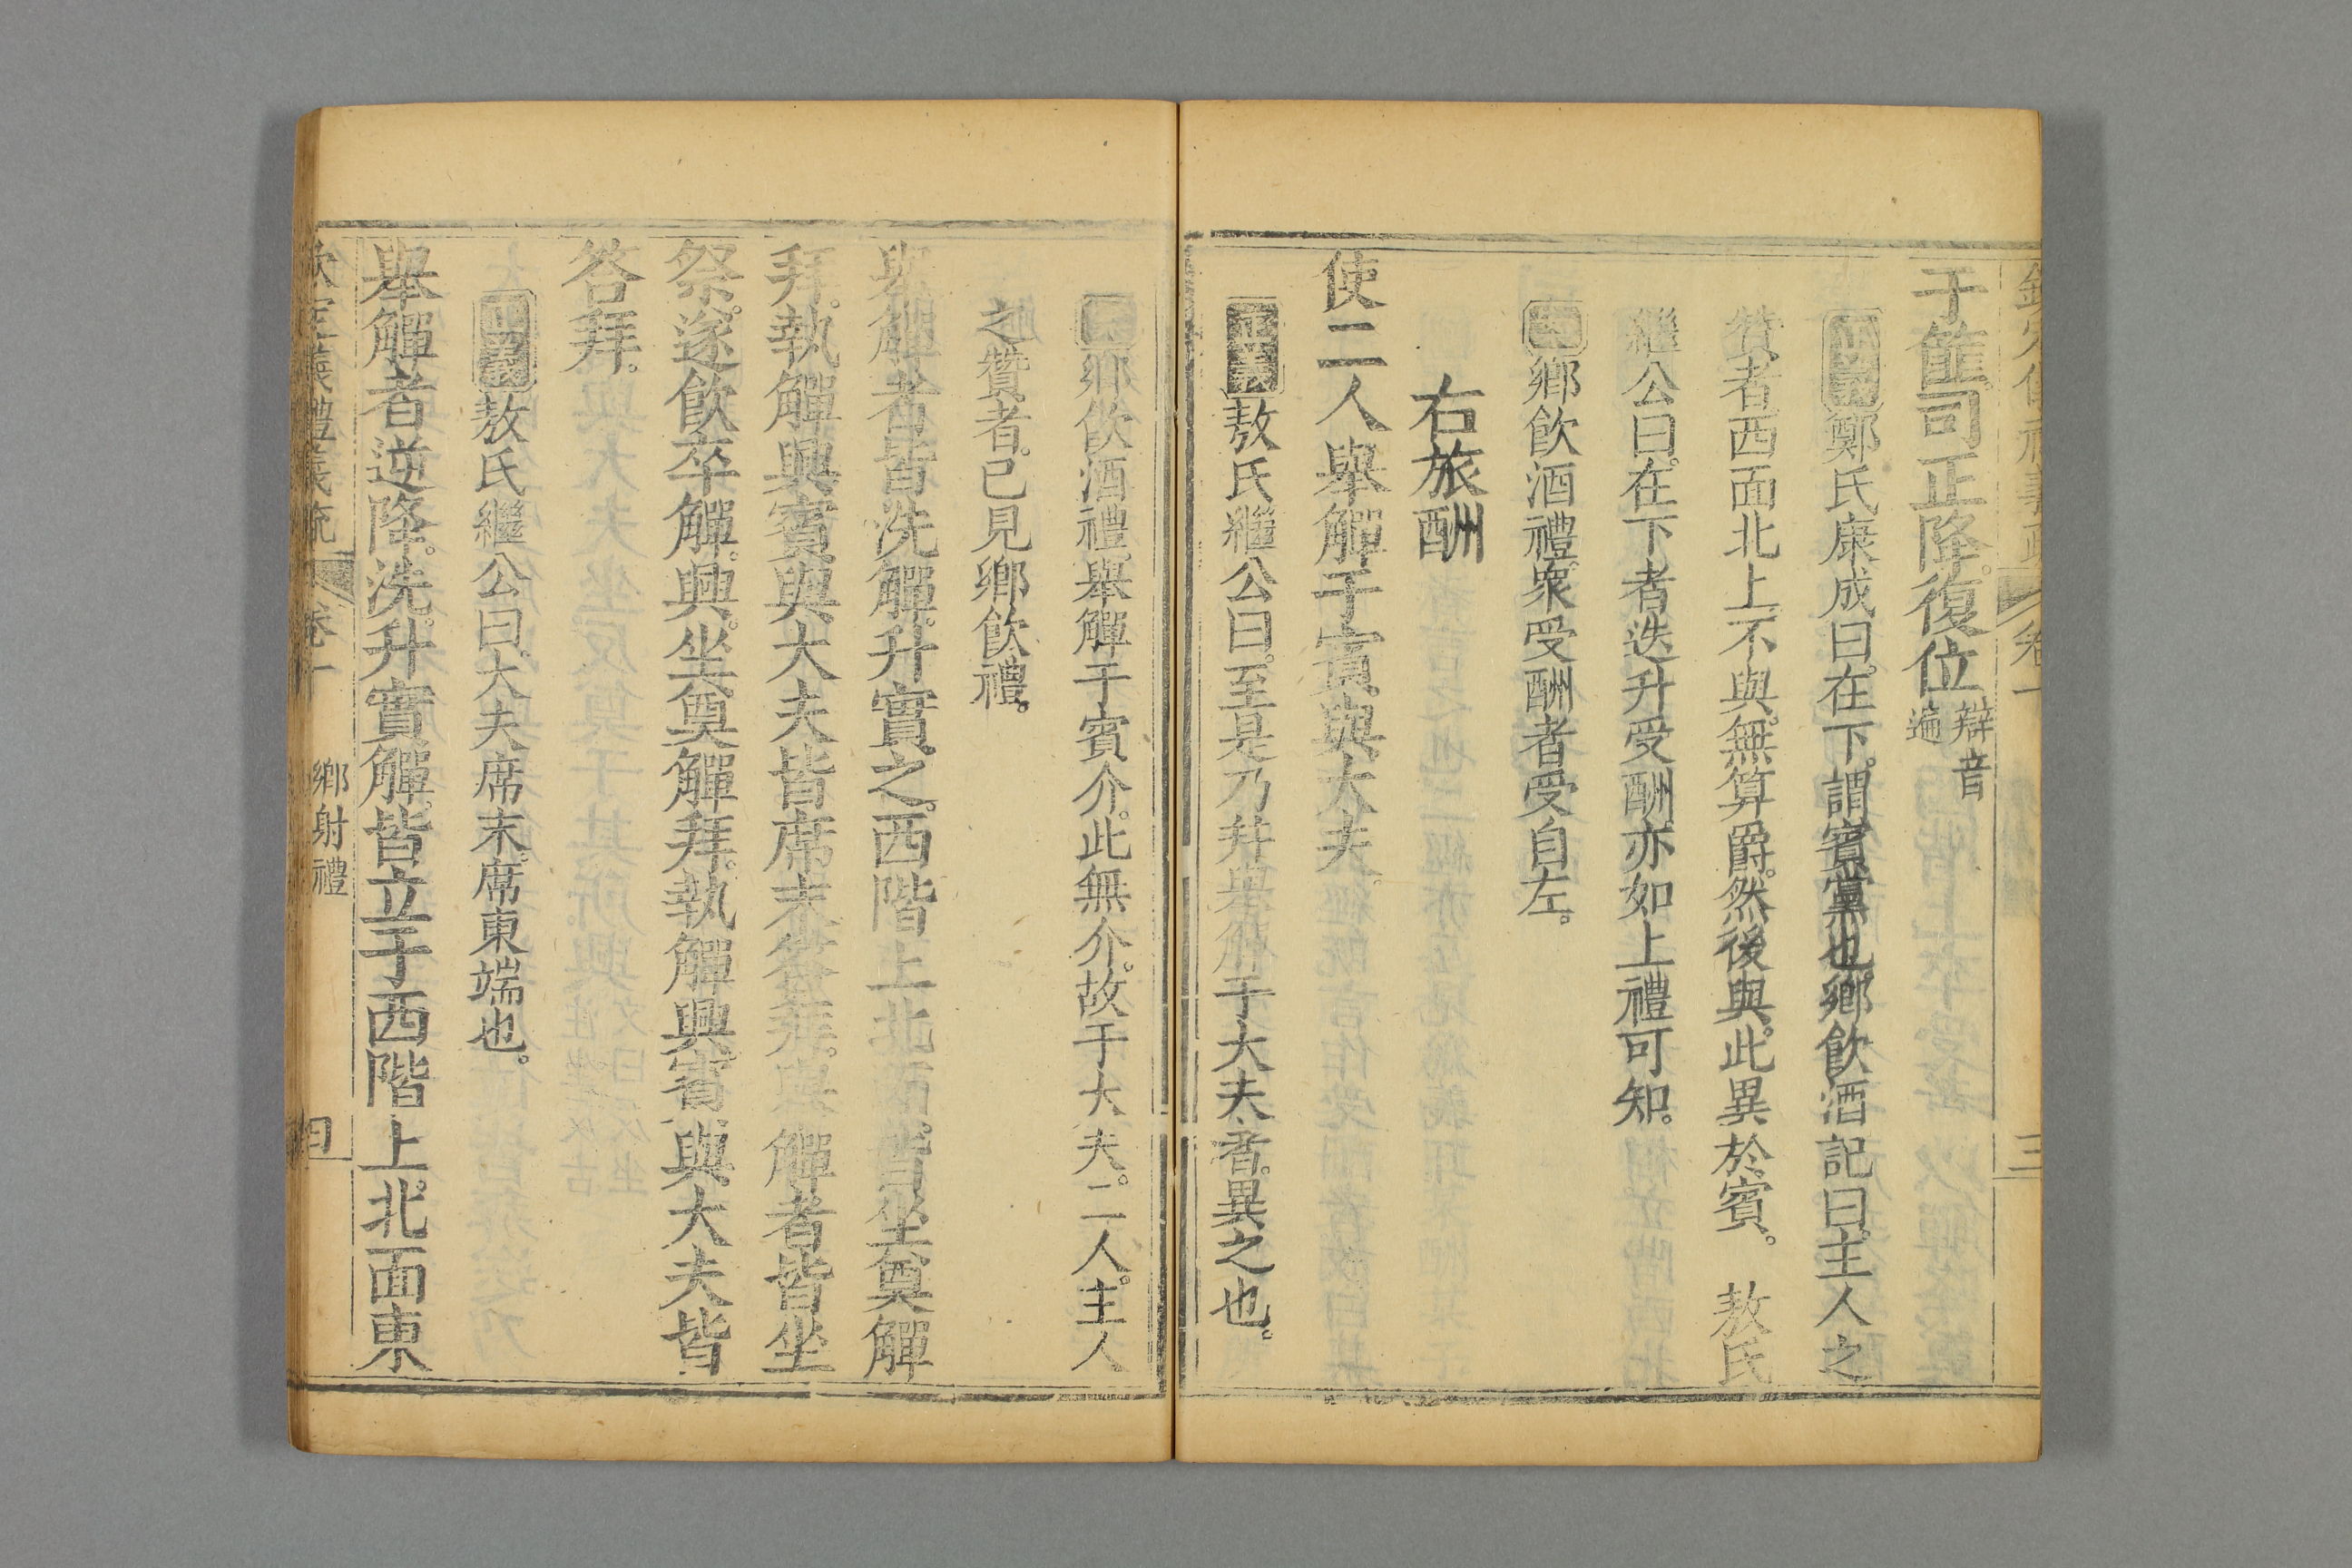 于篚司正降復位辯音遍
正義鄭氏康成曰在下謂賓黨也鄉飲酒記曰主人之
贊者西面北上不與無算爵然後與此異於賓。敖氏
繼公曰在下者迭升受酬亦如上禮可知。
鄉飲酒禮衆受酬者受自左。
右旅酬
使二人舉觶于賓與大夫。
正義敖氏繼公曰至是乃并舉觶于大夫者異之也。
鄉飲酒禮舉觶于賓介此無介故于大夫二人主人
之贊者已見鄉飲禮。
舉觶者皆洗觶升實之西階上北面皆坐奠觶
拜執觶興賓與大夫皆席末答拜。舉觶者皆坐
祭遂飲卒觶興坐奠觶拜執觶興賓與大夫皆
答拜。
正義敖氏繼公曰大夫席末席東端也。
舉觶者逆降洗升實觶皆立于西階上北面東
欽定儀禮義疏 卷十 鄉射禮